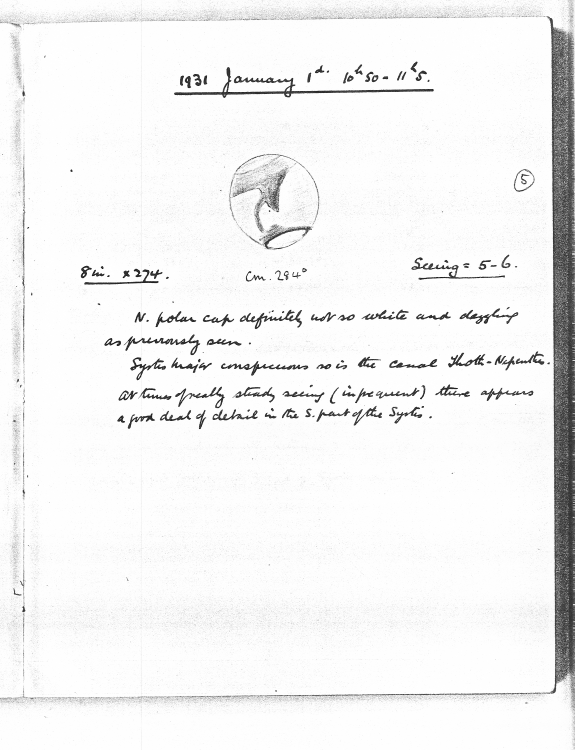 1931 January 1d. 10h 50 - 11h 5.
5
8 in. x 274.
Cm. 284°
Seeing = 5-6.
N. polar cap definitely not so white and dazzling
as previously seen.
Syrtis Major conspicuous so is the canal Thoth-Nepenthes.
At times of really steady seeing (infrequent) there appears
a good deal of detail in the S. part of the Syrtis.